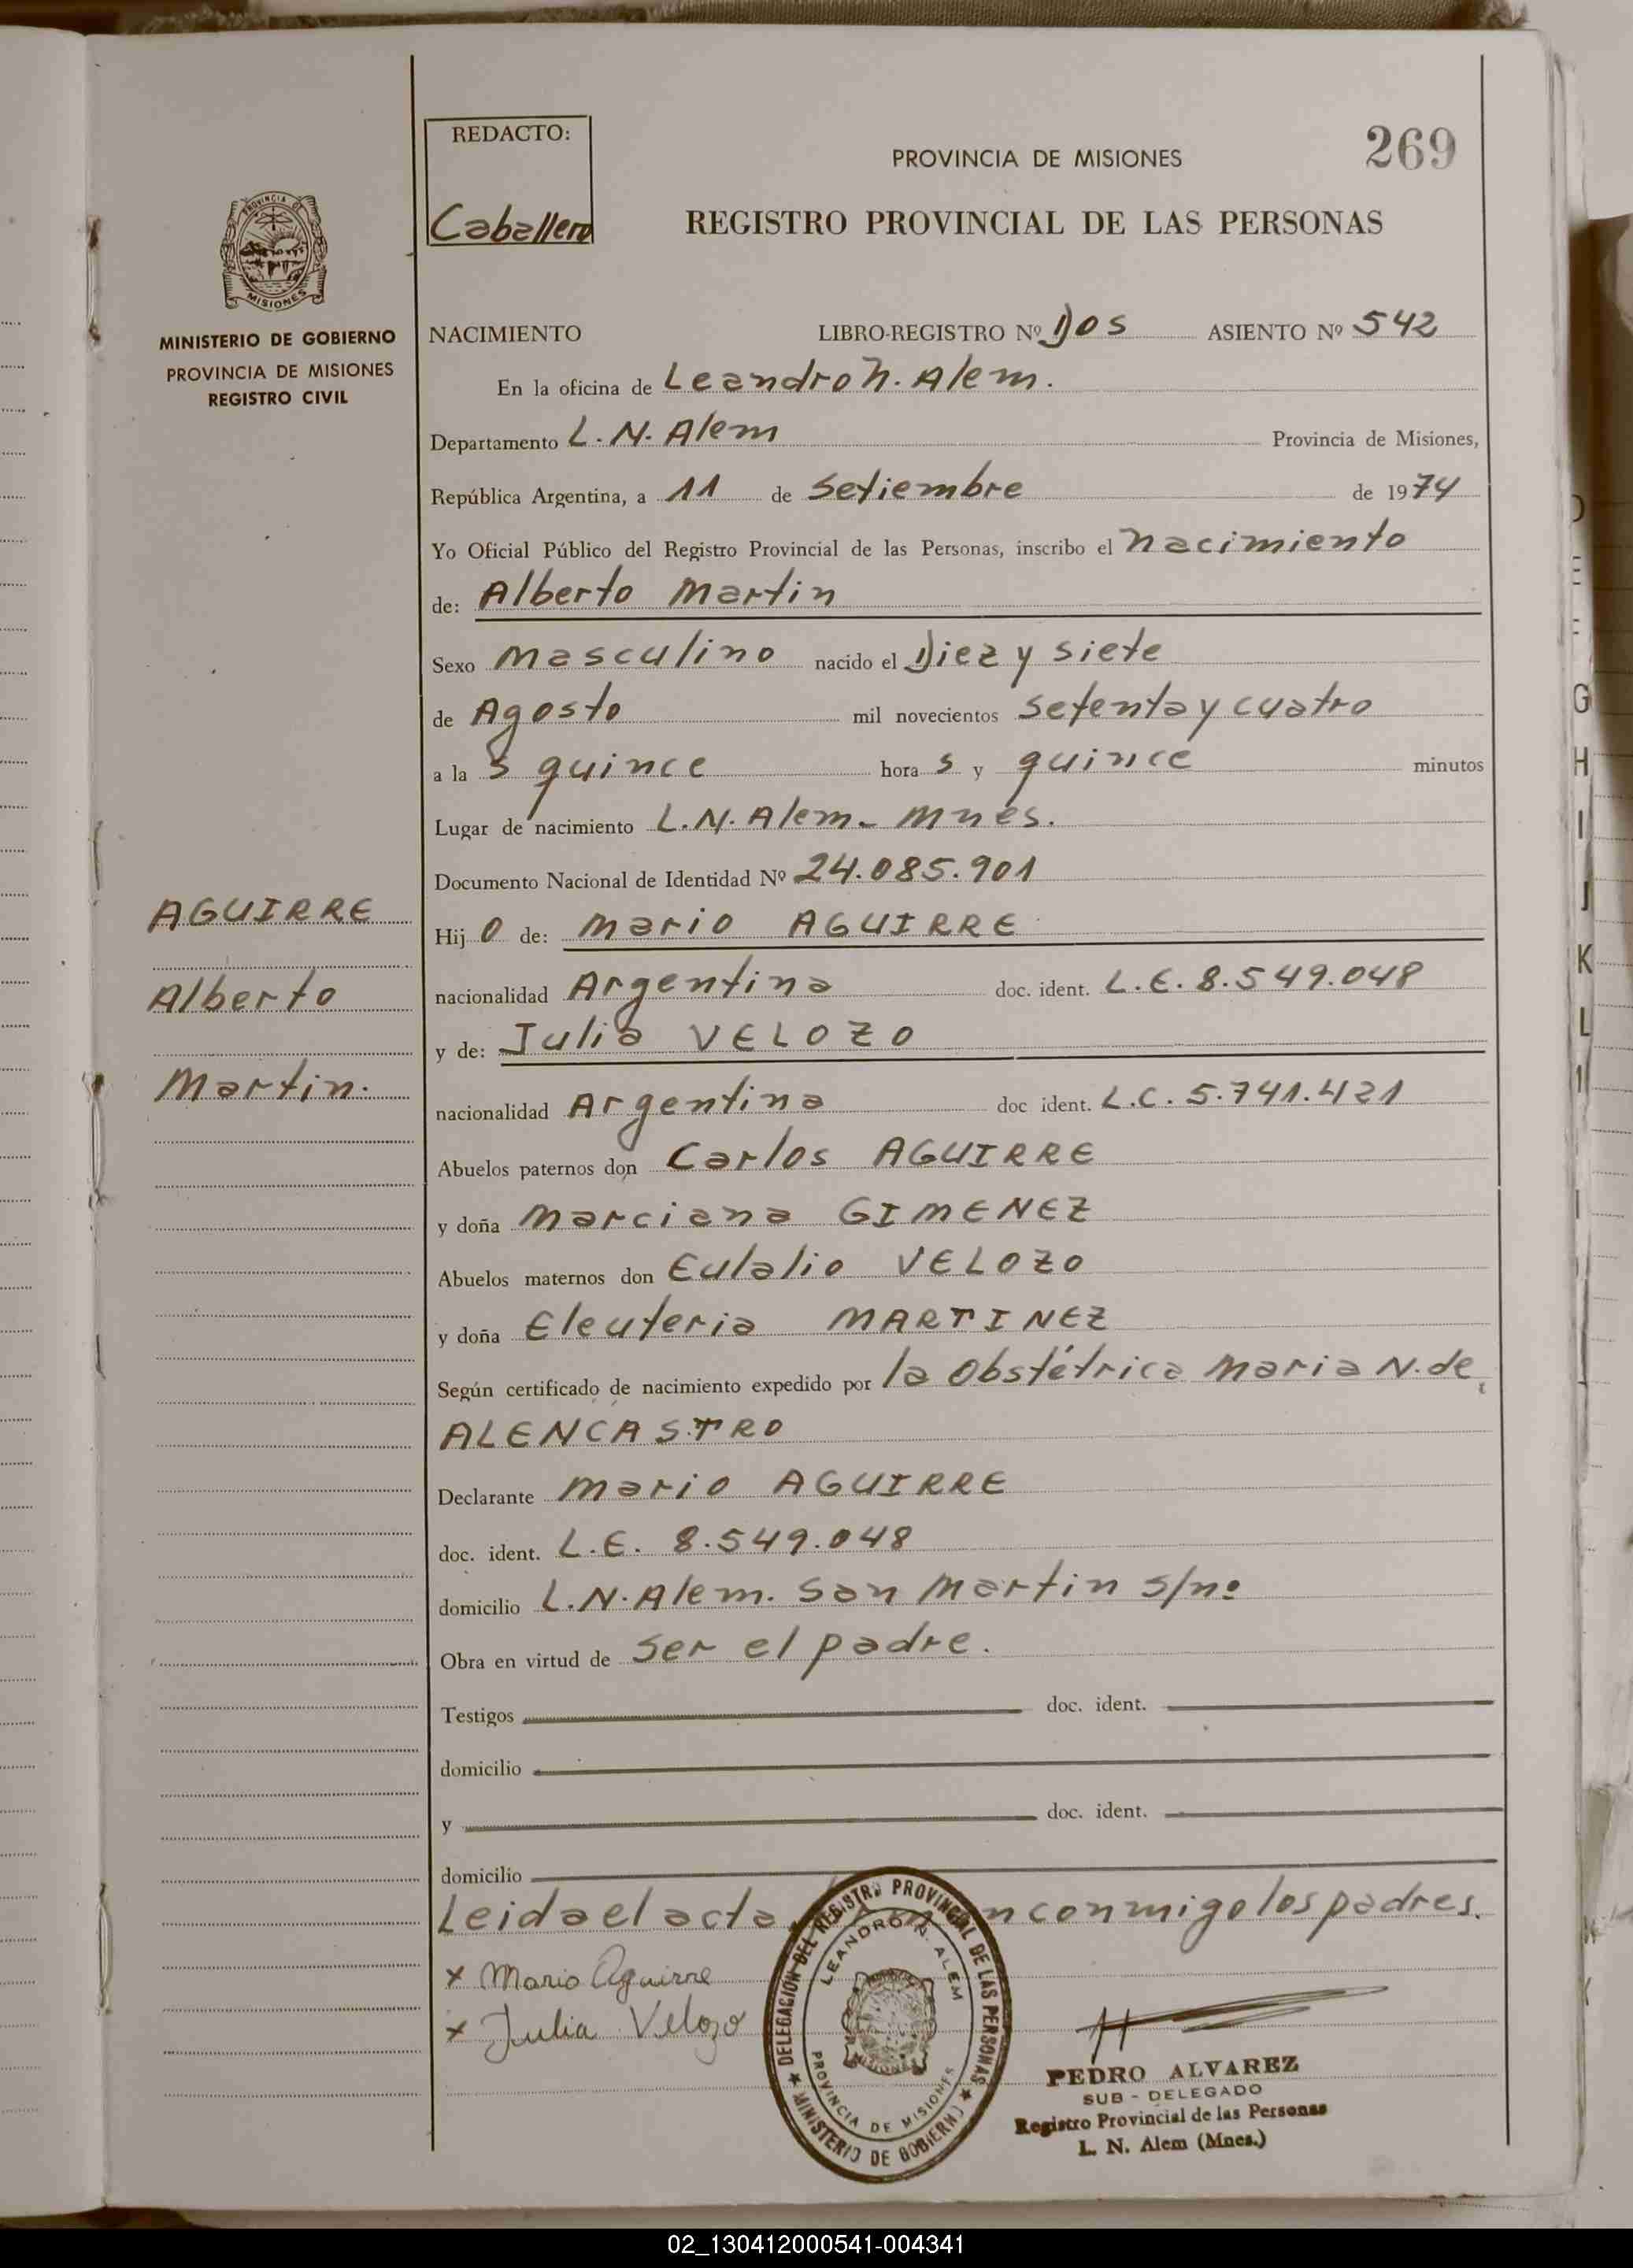 269
REDACTO:
Caballero
PROVINCIA DE MISIONES
REGISTRO PROVINCIAL DE LAS PERSONAS
PROVINCIA DE
MISIONES
MINISTERIO DE GOBIERNO
PROVINCIA DE MISIONES
REGISTRO CIVIL
NACIMIENTO LIBRO-REGISTRO Nº Dos ASIENTO Nº 542
En la oficina de Leandro N. Alem.
Departamento L. N. Alem Provincia de Misiones,
República Argentina, a 11 de Setiembre de 1974
Yo Oficial Público del Registro Provincial de las Personas, inscribo el nacimiento
de: Alberto Martin
Sexo Masculino nacido el Diez y siete
de Agosto mil novecientos setenta y cuatro
a la s quince hora s y quince minutos
Lugar de nacimiento L.N. Alem - Mnes.
Documento Nacional de Identidad Nº 24.085.901
AGUIRRE
Alberto
Martin.
Hij o de: Mario AGUIRRE
nacionalidad Argentina doc. ident. L.E. 8.549.048
y de: Julia VELOZO
nacionalidad Argentina doc ident. L.C. 5.741.421
Abuelos paternos don Carlos AGUIRRE
y doña Marciana GIMENEZ
Abuelos maternos don Eulalio VELOZO
y doña Eleuteria MARTINEZ
Según certificado de nacimiento expedido por la Obstétrica Maria N. de
ALENCASTRO
Declarante Mario AGUIRRE
doc. ident. L.E. 8.549.048
domicilio L.N. Alem. San Martin s/nº
Obra en virtud de ser el padre.
Testigos doc. ident.
domicilio
y doc. ident.
domicilio
Leida el acta n conmigo los padres.
x Mario Aguirre
x Julia Velozo
DELEGACION DEL REGISTRO PROVINCIAL DE LAS PERSONAS
LEANDRO N. ALEM
PROVINCIA DE MISIONES
MINISTERIO DE GOBIERNO
PEDRO ALVAREZ
SUB - DELEGADO
Registro Provincial de las Personas
L. N. Alem (Mnes.)
G
H
I
J
K
L
02_130412000541-004341